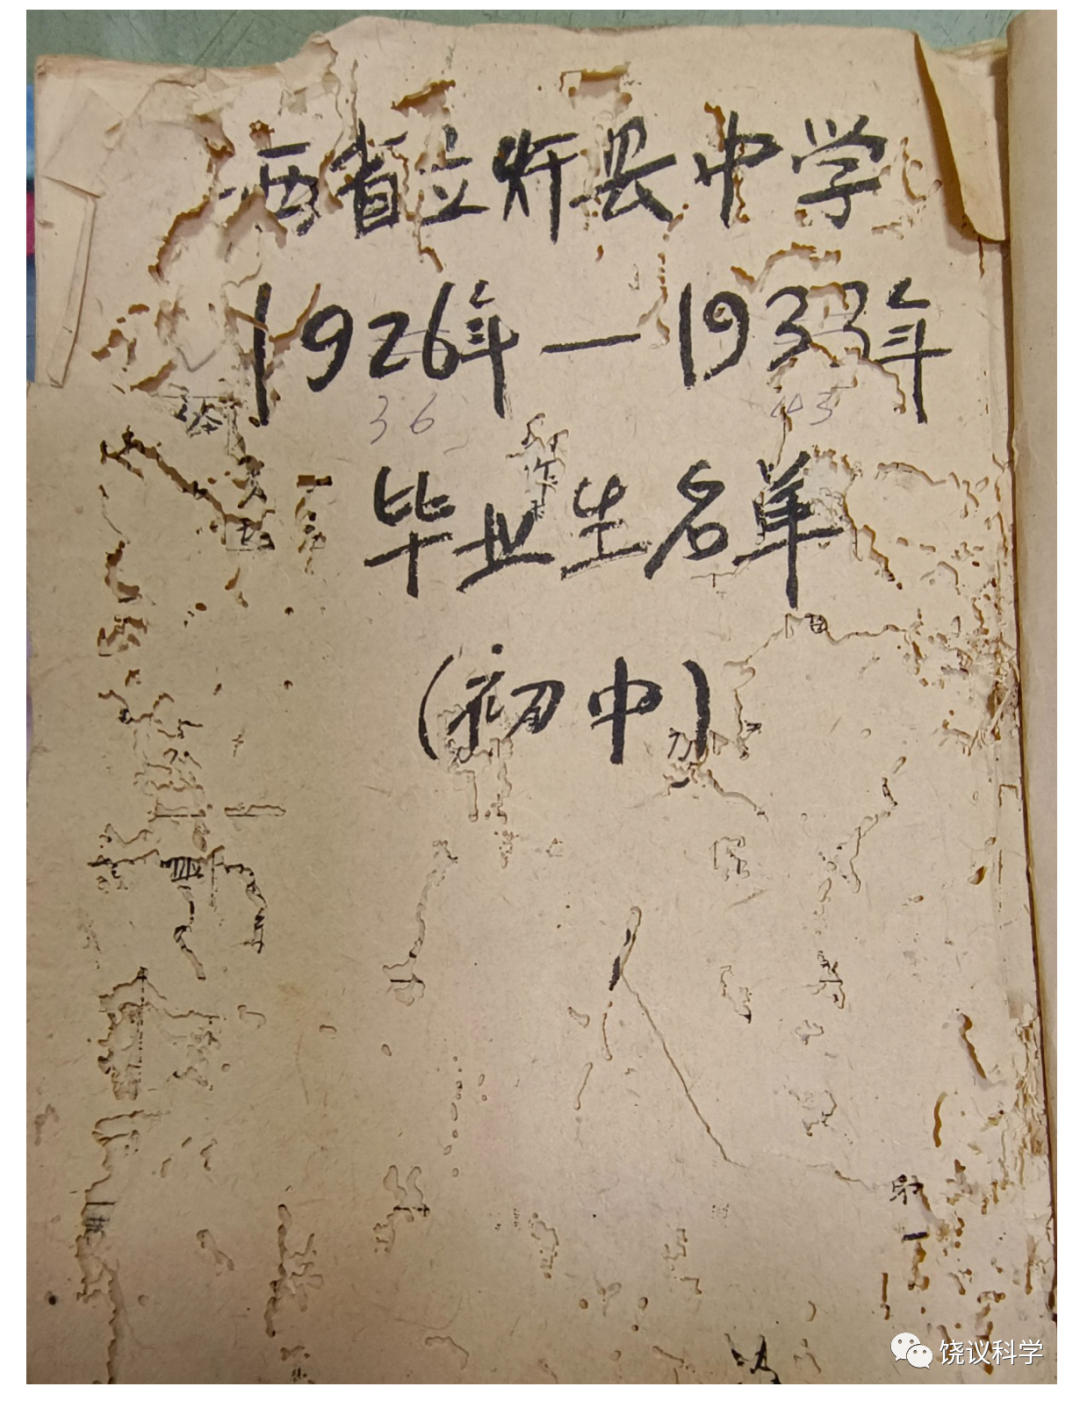 西省立忻县中学
1926年—1933年
36 43
毕业生名单
(初中)
饶议科学